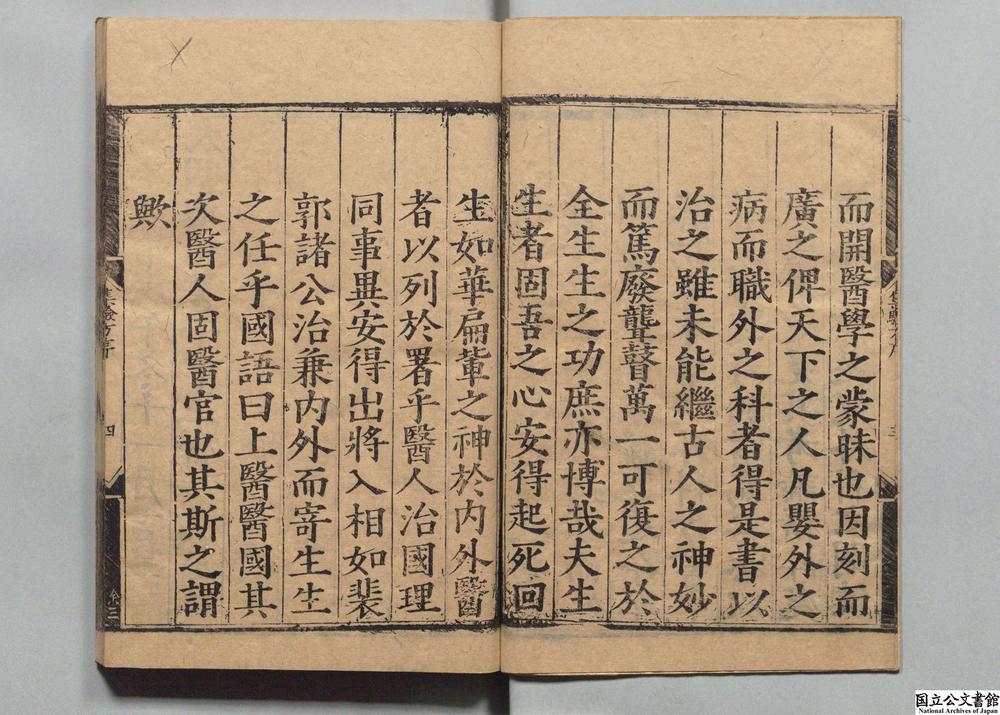 而開醫學之蒙昧也因刻而
廣之俾天下之人凡嬰外之
病而職外之科者得是書以
治之雖未能繼古人之神妙
而篤廢聾瞽萬一可復之於
全生生之功庶亦博哉夫生
生者固吾之心安得起死回
生如華扁軰之神於內外醫
者以列於署乎醫人治國理
同事異安得出將入相如裴
郭諸公治兼內外而寄生生
之任乎國語曰上醫醫國其
次醫人固醫官也其斯之謂
歟
四
国立公文書館
National Archives of Japan